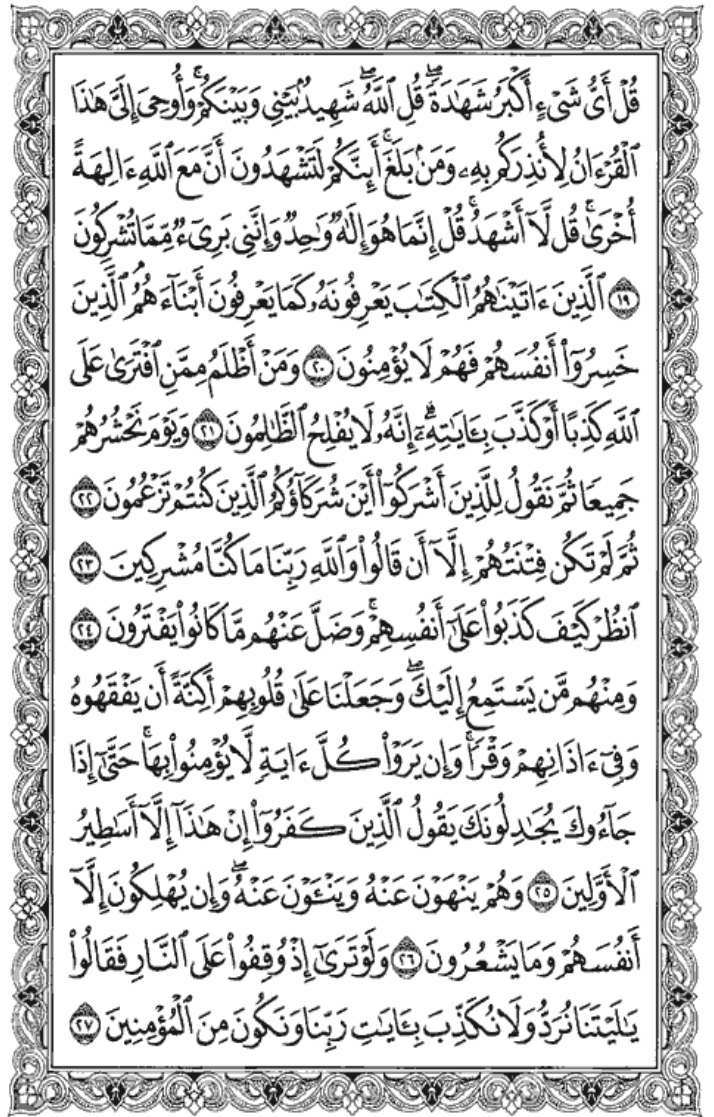 قُلْ أَيُّ شَيْءٍ أَكْبَرُ شَهَٰدَةًۖ قُلِ ٱللَّهُۖ شَهِيدُۢ بَيْنِي وَبَيْنَكُمْۚ وَأُوحِيَ إِلَيَّ هَٰذَا
ٱلْقُرْءَانُ لِأُنذِرَكُم بِهِۦ وَمَنۢ بَلَغَۚ أَئِنَّكُمْ لَتَشْهَدُونَ أَنَّ مَعَ ٱللَّهِ ءَالِهَةً
أُخْرَىٰۚ قُل لَّآ أَشْهَدُۚ قُلْ إِنَّمَا هُوَ إِلَٰهٌ وَٰحِدٌ وَإِنَّنِي بَرِيٓءٌ مِّمَّا تُشْرِكُونَ
١٩ ٱلَّذِينَ ءَاتَيْنَٰهُمُ ٱلْكِتَٰبَ يَعْرِفُونَهُۥ كَمَا يَعْرِفُونَ أَبْنَآءَهُمُۘ ٱلَّذِينَ
خَسِرُوٓا۟ أَنفُسَهُمْ فَهُمْ لَا يُؤْمِنُونَ ٢٠ وَمَنْ أَظْلَمُ مِمَّنِ ٱفْتَرَىٰ عَلَى
ٱللَّهِ كَذِبًا أَوْ كَذَّبَ بِـَٔايَٰتِهِۦٓۗ إِنَّهُۥ لَا يُفْلِحُ ٱلظَّٰلِمُونَ ٢١ وَيَوْمَ نَحْشُرُهُمْ
جَمِيعًا ثُمَّ نَقُولُ لِلَّذِينَ أَشْرَكُوٓا۟ أَيْنَ شُرَكَآؤُكُمُ ٱلَّذِينَ كُنتُمْ تَزْعُمُونَ ٢٢
ثُمَّ لَمْ تَكُن فِتْنَتُهُمْ إِلَّآ أَن قَالُوا۟ وَٱللَّهِ رَبِّنَا مَا كُنَّا مُشْرِكِينَ ٢٣
ٱنظُرْ كَيْفَ كَذَبُوا۟ عَلَىٰٓ أَنفُسِهِمْۚ وَضَلَّ عَنْهُم مَّا كَانُوا۟ يَفْتَرُونَ ٢٤
وَمِنْهُم مَّن يَسْتَمِعُ إِلَيْكَۖ وَجَعَلْنَا عَلَىٰ قُلُوبِهِمْ أَكِنَّةً أَن يَفْقَهُوهُ
وَفِيٓ ءَاذَانِهِمْ وَقْرًاۚ وَإِن يَرَوْا۟ كُلَّ ءَايَةٍ لَّا يُؤْمِنُوا۟ بِهَاۚ حَتَّىٰٓ إِذَا
جَآءُوكَ يُجَٰدِلُونَكَ يَقُولُ ٱلَّذِينَ كَفَرُوٓا۟ إِنْ هَٰذَآ إِلَّآ أَسَٰطِيرُ
ٱلْأَوَّلِينَ ٢٥ وَهُمْ يَنْهَوْنَ عَنْهُ وَيَنْـَٔوْنَ عَنْهُۖ وَإِن يُهْلِكُونَ إِلَّآ
أَنفُسَهُمْ وَمَا يَشْعُرُونَ ٢٦ وَلَوْ تَرَىٰٓ إِذْ وُقِفُوا۟ عَلَى ٱلنَّارِ فَقَالُوا۟
يَٰلَيْتَنَا نُرَدُّ وَلَا نُكَذِّبَ بِـَٔايَٰتِ رَبِّنَا وَنَكُونَ مِنَ ٱلْمُؤْمِنِينَ ٢٧